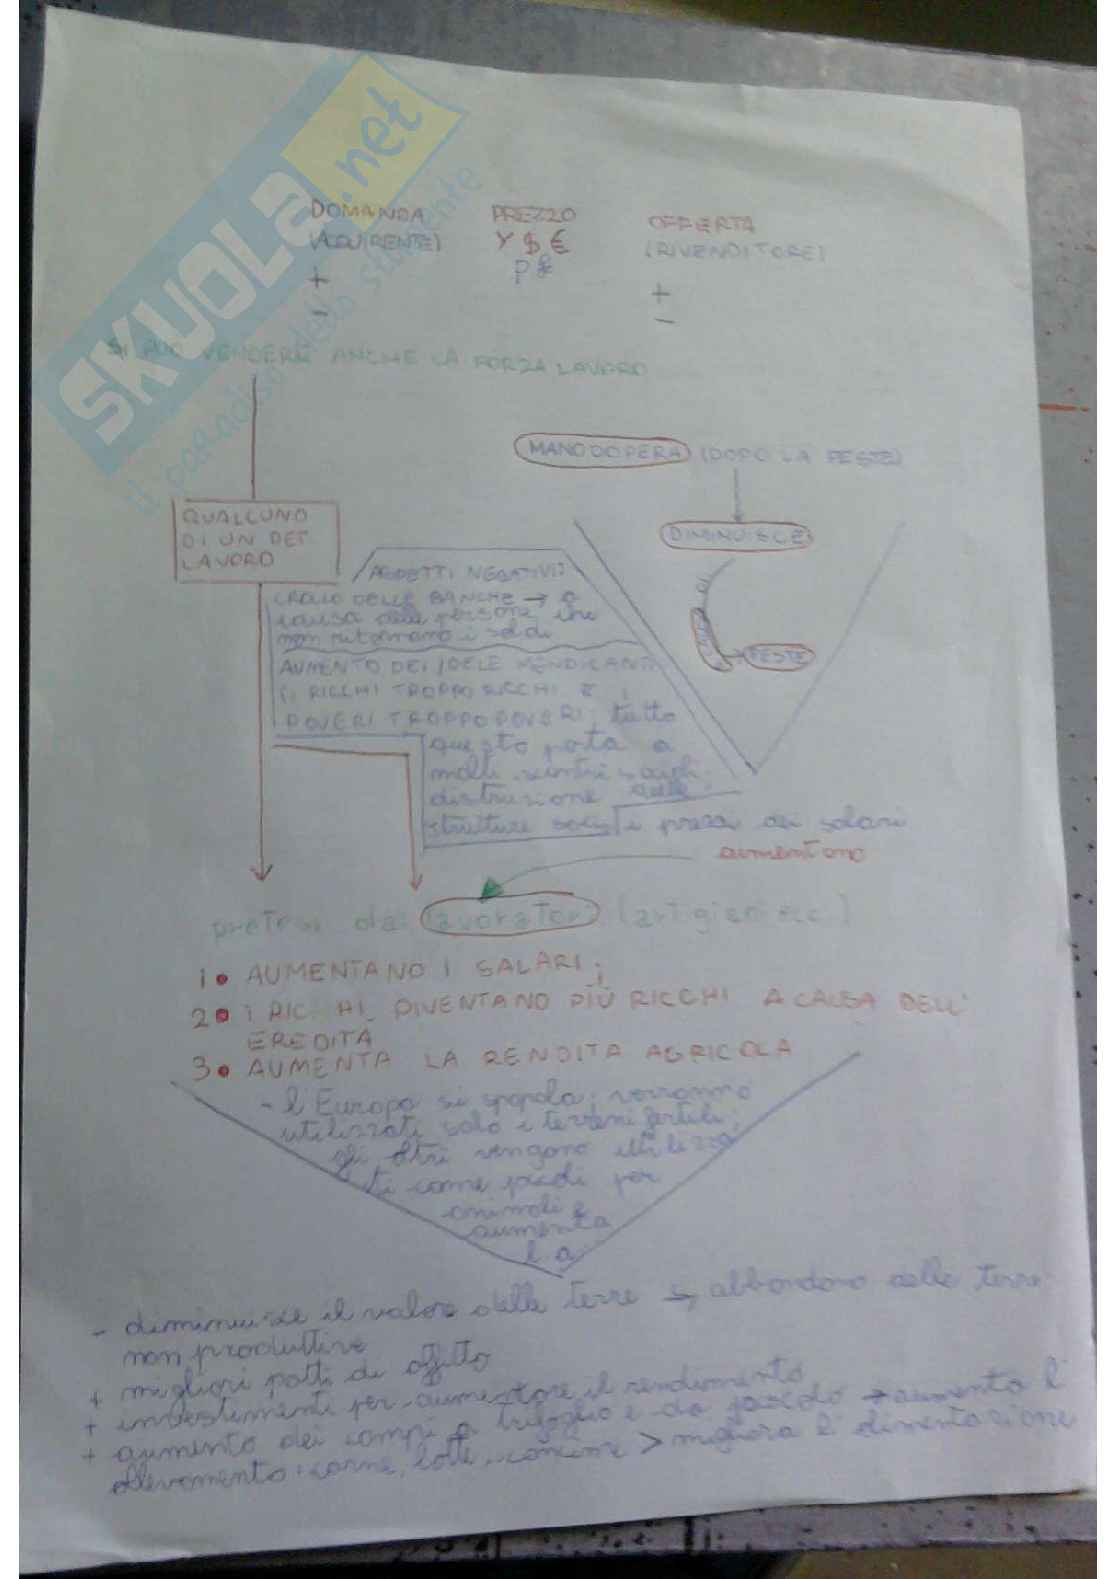 SKUOLA.net
il paradiso dello studente
DOMANDA PREZZO OFFERTA
(ACQUIRENTE) Y $ € (RIVENDITORE)
+ +
- -
SI PUÒ VENDERE ANCHE LA FORZA LAVORO
MANODOPERA (DOPO LA PESTE)
QUALCUNO
DI UN DET.
LAVORO
DIMINUISCE
NEGATIVI:
CROLLO DELLE BANCHE → a
causa delle persone che
non ritornano i soldi
PESTE
AUMENTO DEI/DELLE MENDICANTI
(I RICCHI TROPPO RICCHI E I
POVERI TROPPO POVERI; tutto
questo porta a
molti scontri sociali
distruzione delle
strutture i prezzi dei salari
aumentano
dai lavoratori (artigiani ecc.)
1• AUMENTANO I SALARI;
2• I RICCHI DIVENTANO PIÙ RICCHI A CAUSA DELL'
EREDITÀ
3• AUMENTA LA RENDITA AGRICOLA
- l'Europa si spopola; verranno
utilizzati solo i terreni fertili;
gli altri vengono utilizza
ti come pascoli per
animali e
aumenta
la
- diminuisce il valore delle terre → abbandono delle terre
non produttive
+ migliori patti di affitto
+ investimenti per aumentare il rendimento
+ aumento dei campi a trifoglio e da pascolo → aumenta l'
allevamento: carne, latte, concime > migliora l'alimentazione